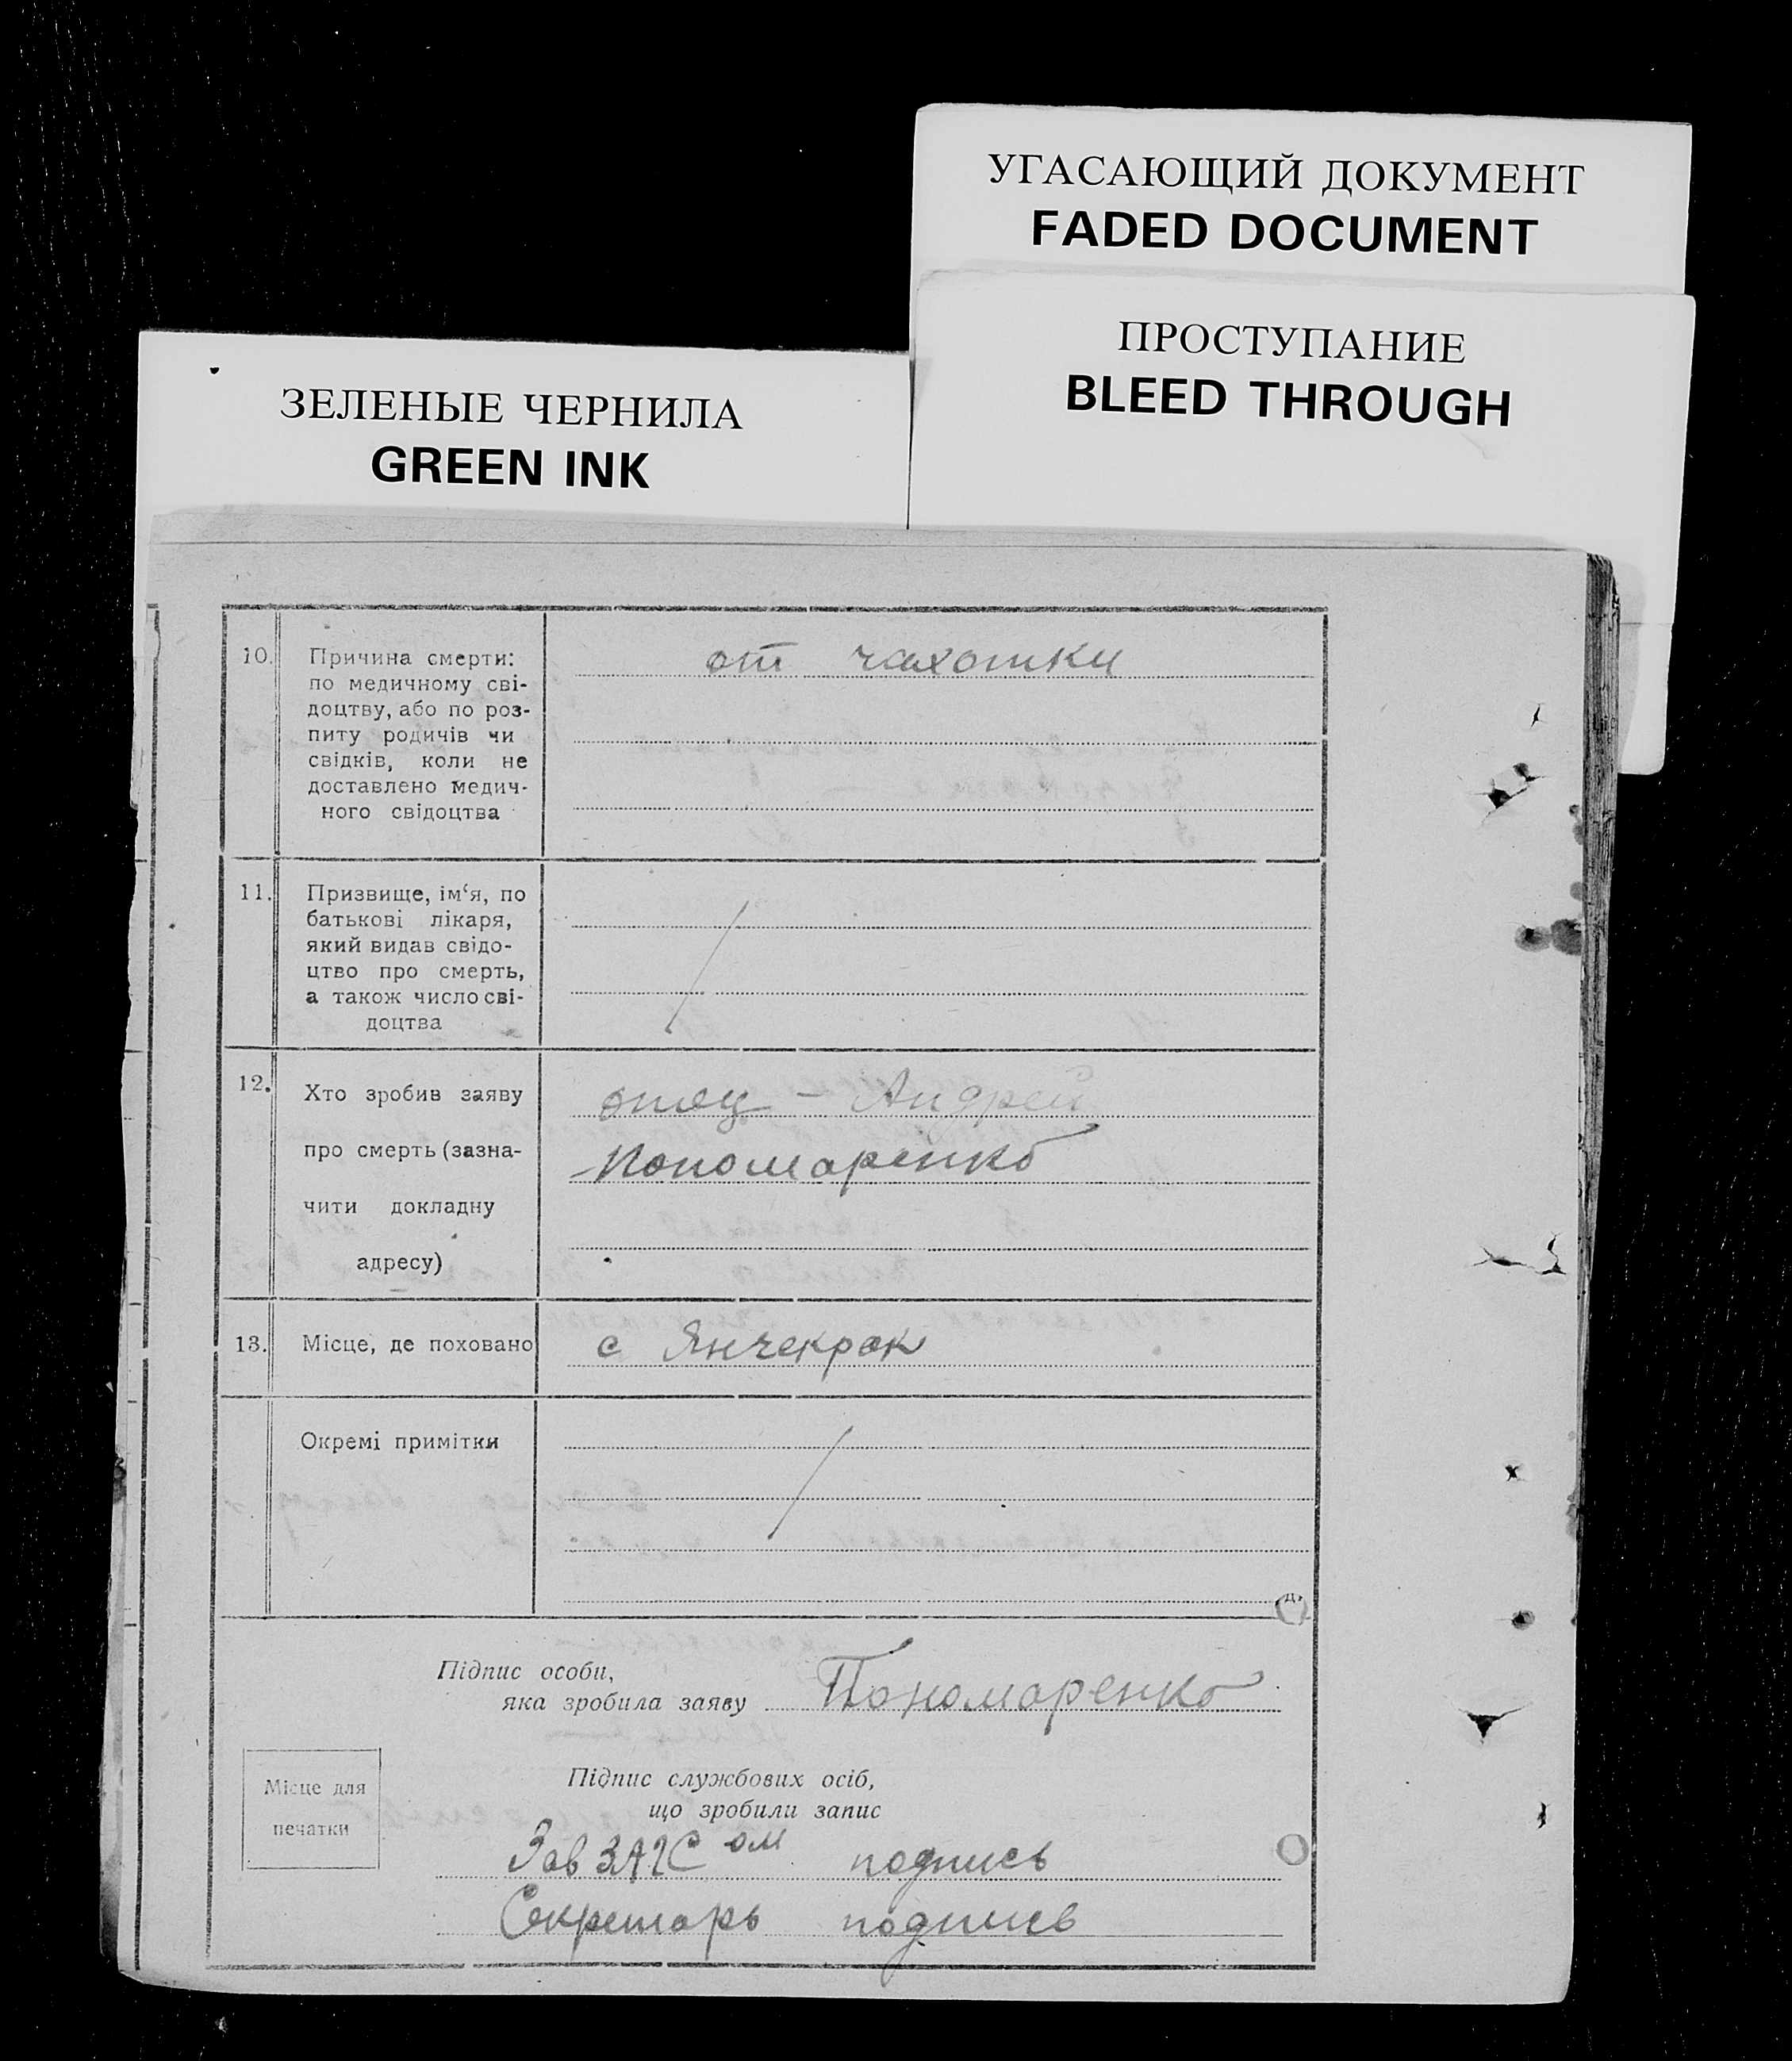 УГАСАЮЩИЙ ДОКУМЕНТ
FADED DOCUMENT
ПРОСТУПАНИЕ
BLEED THROUGH
ЗЕЛЕНЫЕ ЧЕРНИЛА
GREEN INK
10. Причина смерти: от чахотки
по медичному сві-
доцтву, або по роз-
питу родичів чи
свідків, коли не
доставлено медич-
ного свідоцтва
11. Призвище, ім‘я, по
батькові лікаря,
який видав свідо-
цтво про смерть,
а також число сві-
доцтва
12. Хто зробив заяву отец - Андрей
про смерть (зазна- Пономаренко
чити докладну
адресу)
13. Місце, де поховано с Янчекрак
Окремі примітки
Підпис особи,
яка зробила заяву Пономаренко
Місце для
печатки
Підпис службових осіб,
що зробили запис
Зав ЗАГС ом подпись
Секретарь подпись